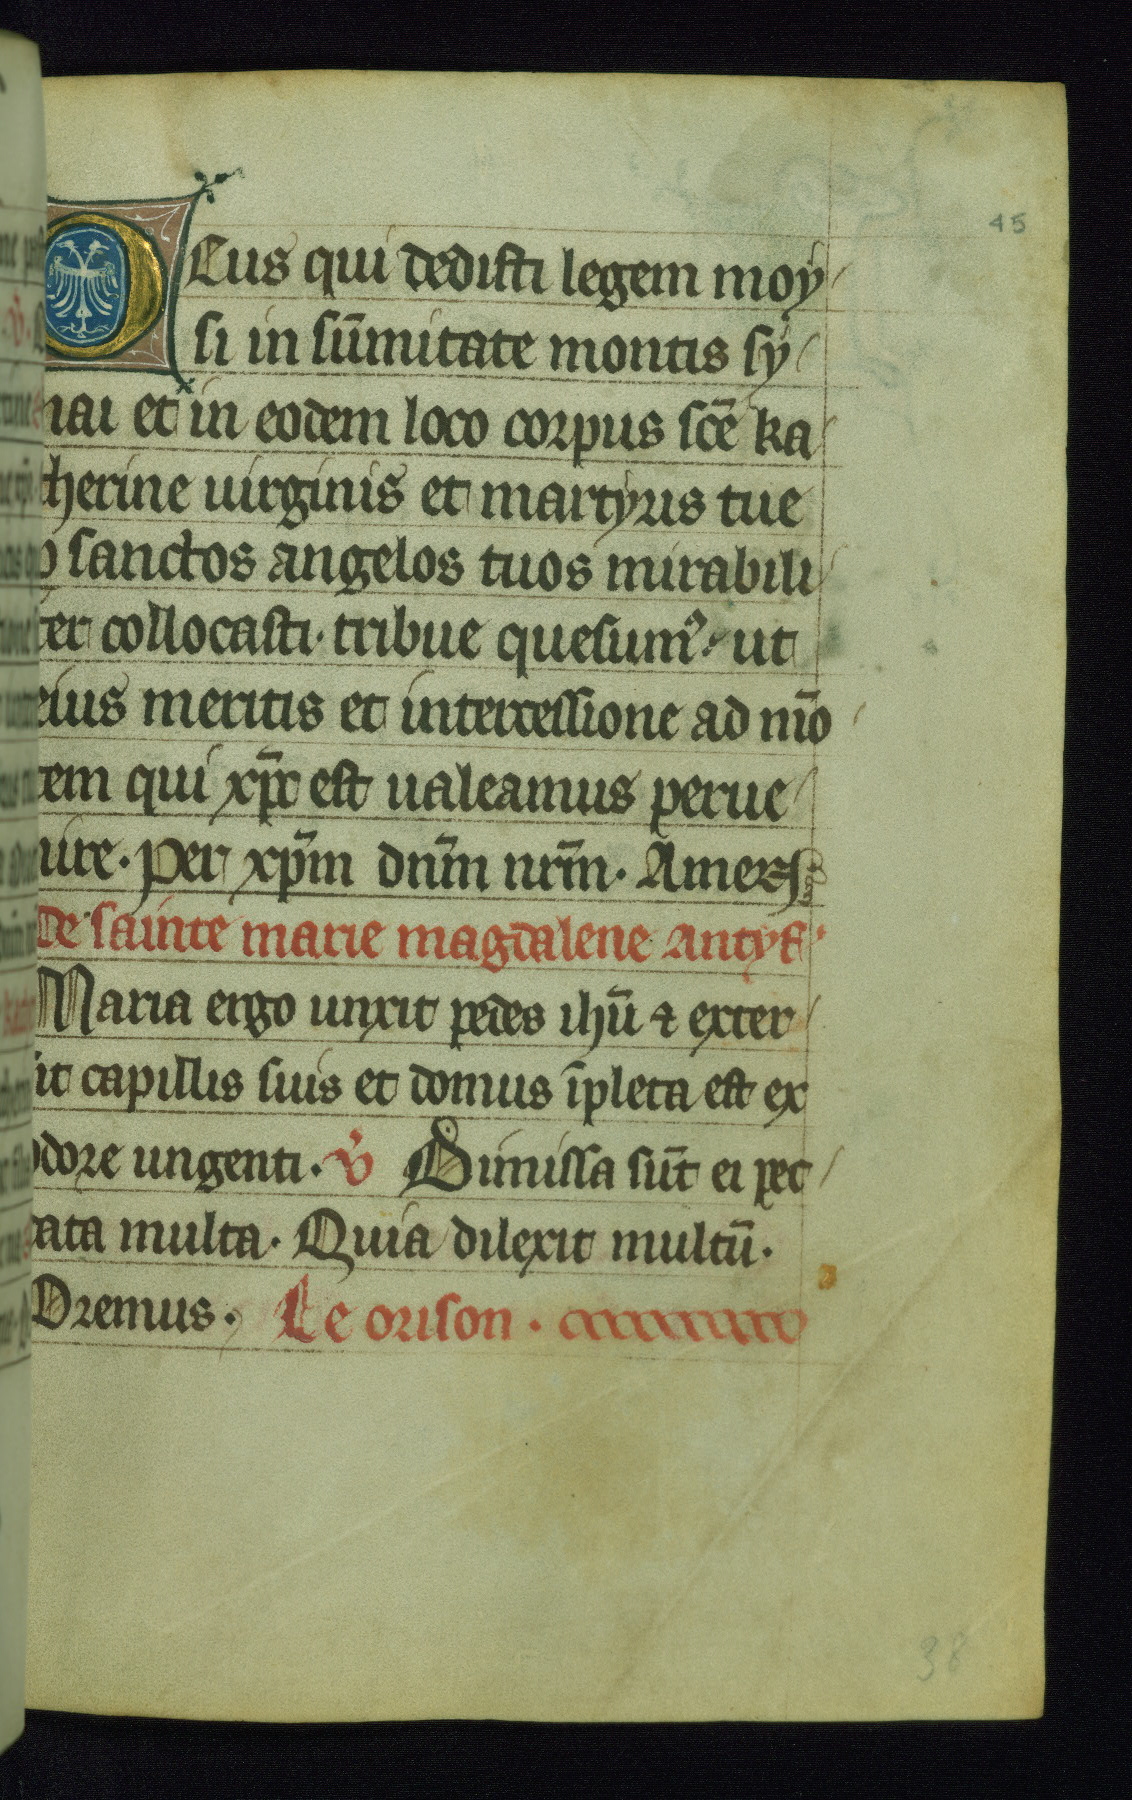 45
Deus qui dedisti legem moy
si in sūmitate montis sy
nai et in eodem loco corpus sc̄e ka
therine uirginis et martyris tue
p̱ sanctos angelos tuos mirabili
ter collocasti· tribue quesumꝰ· ut
eius meritis et intercessione ad mō
tem qui xp̄c est ualeamus perue
nire· per xp̄m dn̄m nr̄m· Amen
De sainte marie magdalene antyf·
Maria ergo unxit pedes ihū ⁊ exter
sit capillis suis et domus īpleta est ex
odore ungenti· v̄ Dimissa sūt ei pec
cata multa· Quia dilexit multū·
Oremus· Le orison·
38